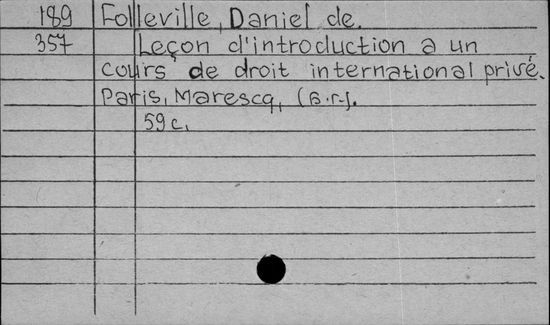 189 Folleville, Daniel de.
357 Leçon d'introduction a un
cours de droit international privé.
Paris, Marescq, (s.r.).
59 c.